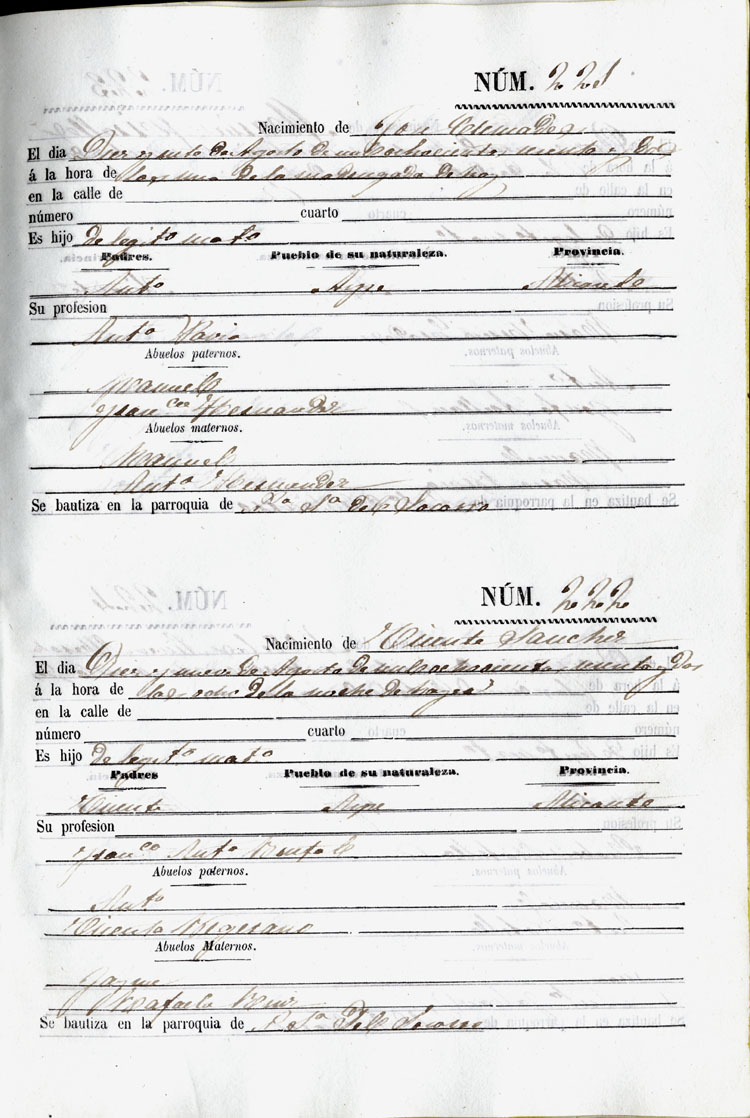 NÚM. 221
Nacimiento de José Cremades
El dia Diez y nueve de Agosto de mil ochocientos y dos
á la hora de las una de la madrugada de hoy
en la calle de
número cuarto
Es hijo de legit.o mat.o
Padres. Pueblo de su naturaleza. Provincia.
Ant.o Aspe Alicante
Su profesion
Ant.a Pavia
Abuelos paternos.
Manuel
Fran.ca Hernandez
Abuelos maternos.
Manuel
Ant.a Hernandez
Se bautiza en la parroquia de N.a S.a del Socorro
NÚM. 222
Nacimiento de Vicente Sanchez
El dia Diez y nueve de Agosto de mil ochociento y dos
á la hora de las ocho de la noche de hayer
en la calle de
número cuarto
Es hijo de legit.o mat.o
Padres Pueblo de su naturaleza. Provincia.
Vicente Aspe Alicante
Su profesion
Fran.ca Ant.a
Abuelos paternos.
Ant.o
Vicenta
Abuelos Maternos.
Jayme
Rafaela
Se bautiza en la parroquia de N.a S.a del Socorro